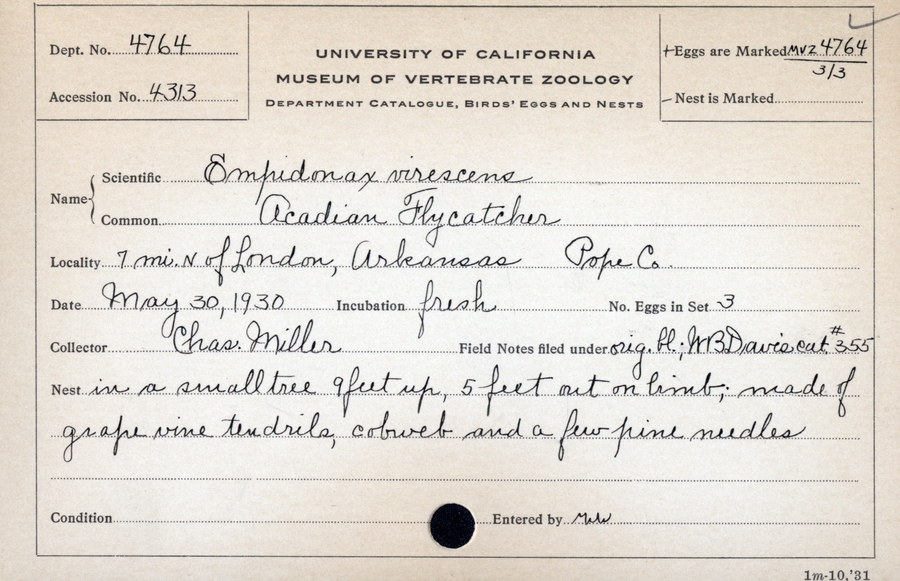 Dept. No. 4764
Accession No. 4313
UNIVERSITY OF CALIFORNIA
MUSEUM OF VERTEBRATE ZOOLOGY
DEPARTMENT CATALOGUE, BIRDS' EGGS AND NESTS
+Eggs are Marked MVZ 4764
3/3
–Nest is Marked
Name
Scientific Empidonax virescens
Common Acadian Flycatcher
Locality 7 mi. N of London, Arkansas Pope Co.
Date May 30, 1930 Incubation fresh No. Eggs in Set 3
Collector Chas. Miller Field Notes filed under orig. bl.; WBDavis cat. #355
Nest in a small tree 9 feet up, 5 feet out on limb; made of
grape vine tendrils, cobweb and a few pine needles
Condition Entered by
1m-10,'31